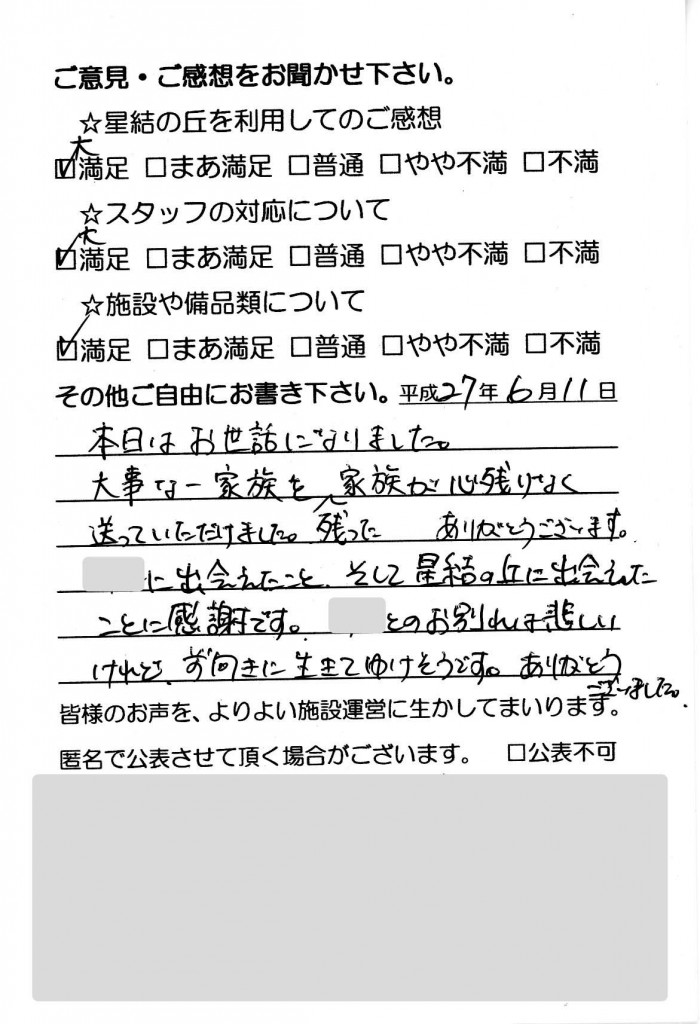 ご意見・ご感想をお聞かせ下さい。
☆星結の丘を利用してのご感想
大
☑満足 □まあ満足 □普通 □やや不満 □不満
☆スタッフの対応について
大
☑満足 □まあ満足 □普通 □やや不満 □不満
☆施設や備品類について
☑満足 □まあ満足 □普通 □やや不満 □不満
その他ご自由にお書き下さい。平成27年6月11日
本日はお世話になりました。
大事な一家族を、家族が心残りなく
送っていただけました。残った ありがとうございます。
に出会えたこと、そして星結の丘に出会えた
ことに感謝です。 とのお別れは悲しい
けれど、前向きに生きてゆけそうです。ありがとう
ございました。
皆様のお声を、よりよい施設運営に生かしてまいります。
匿名で公表させて頂く場合がございます。 □公表不可